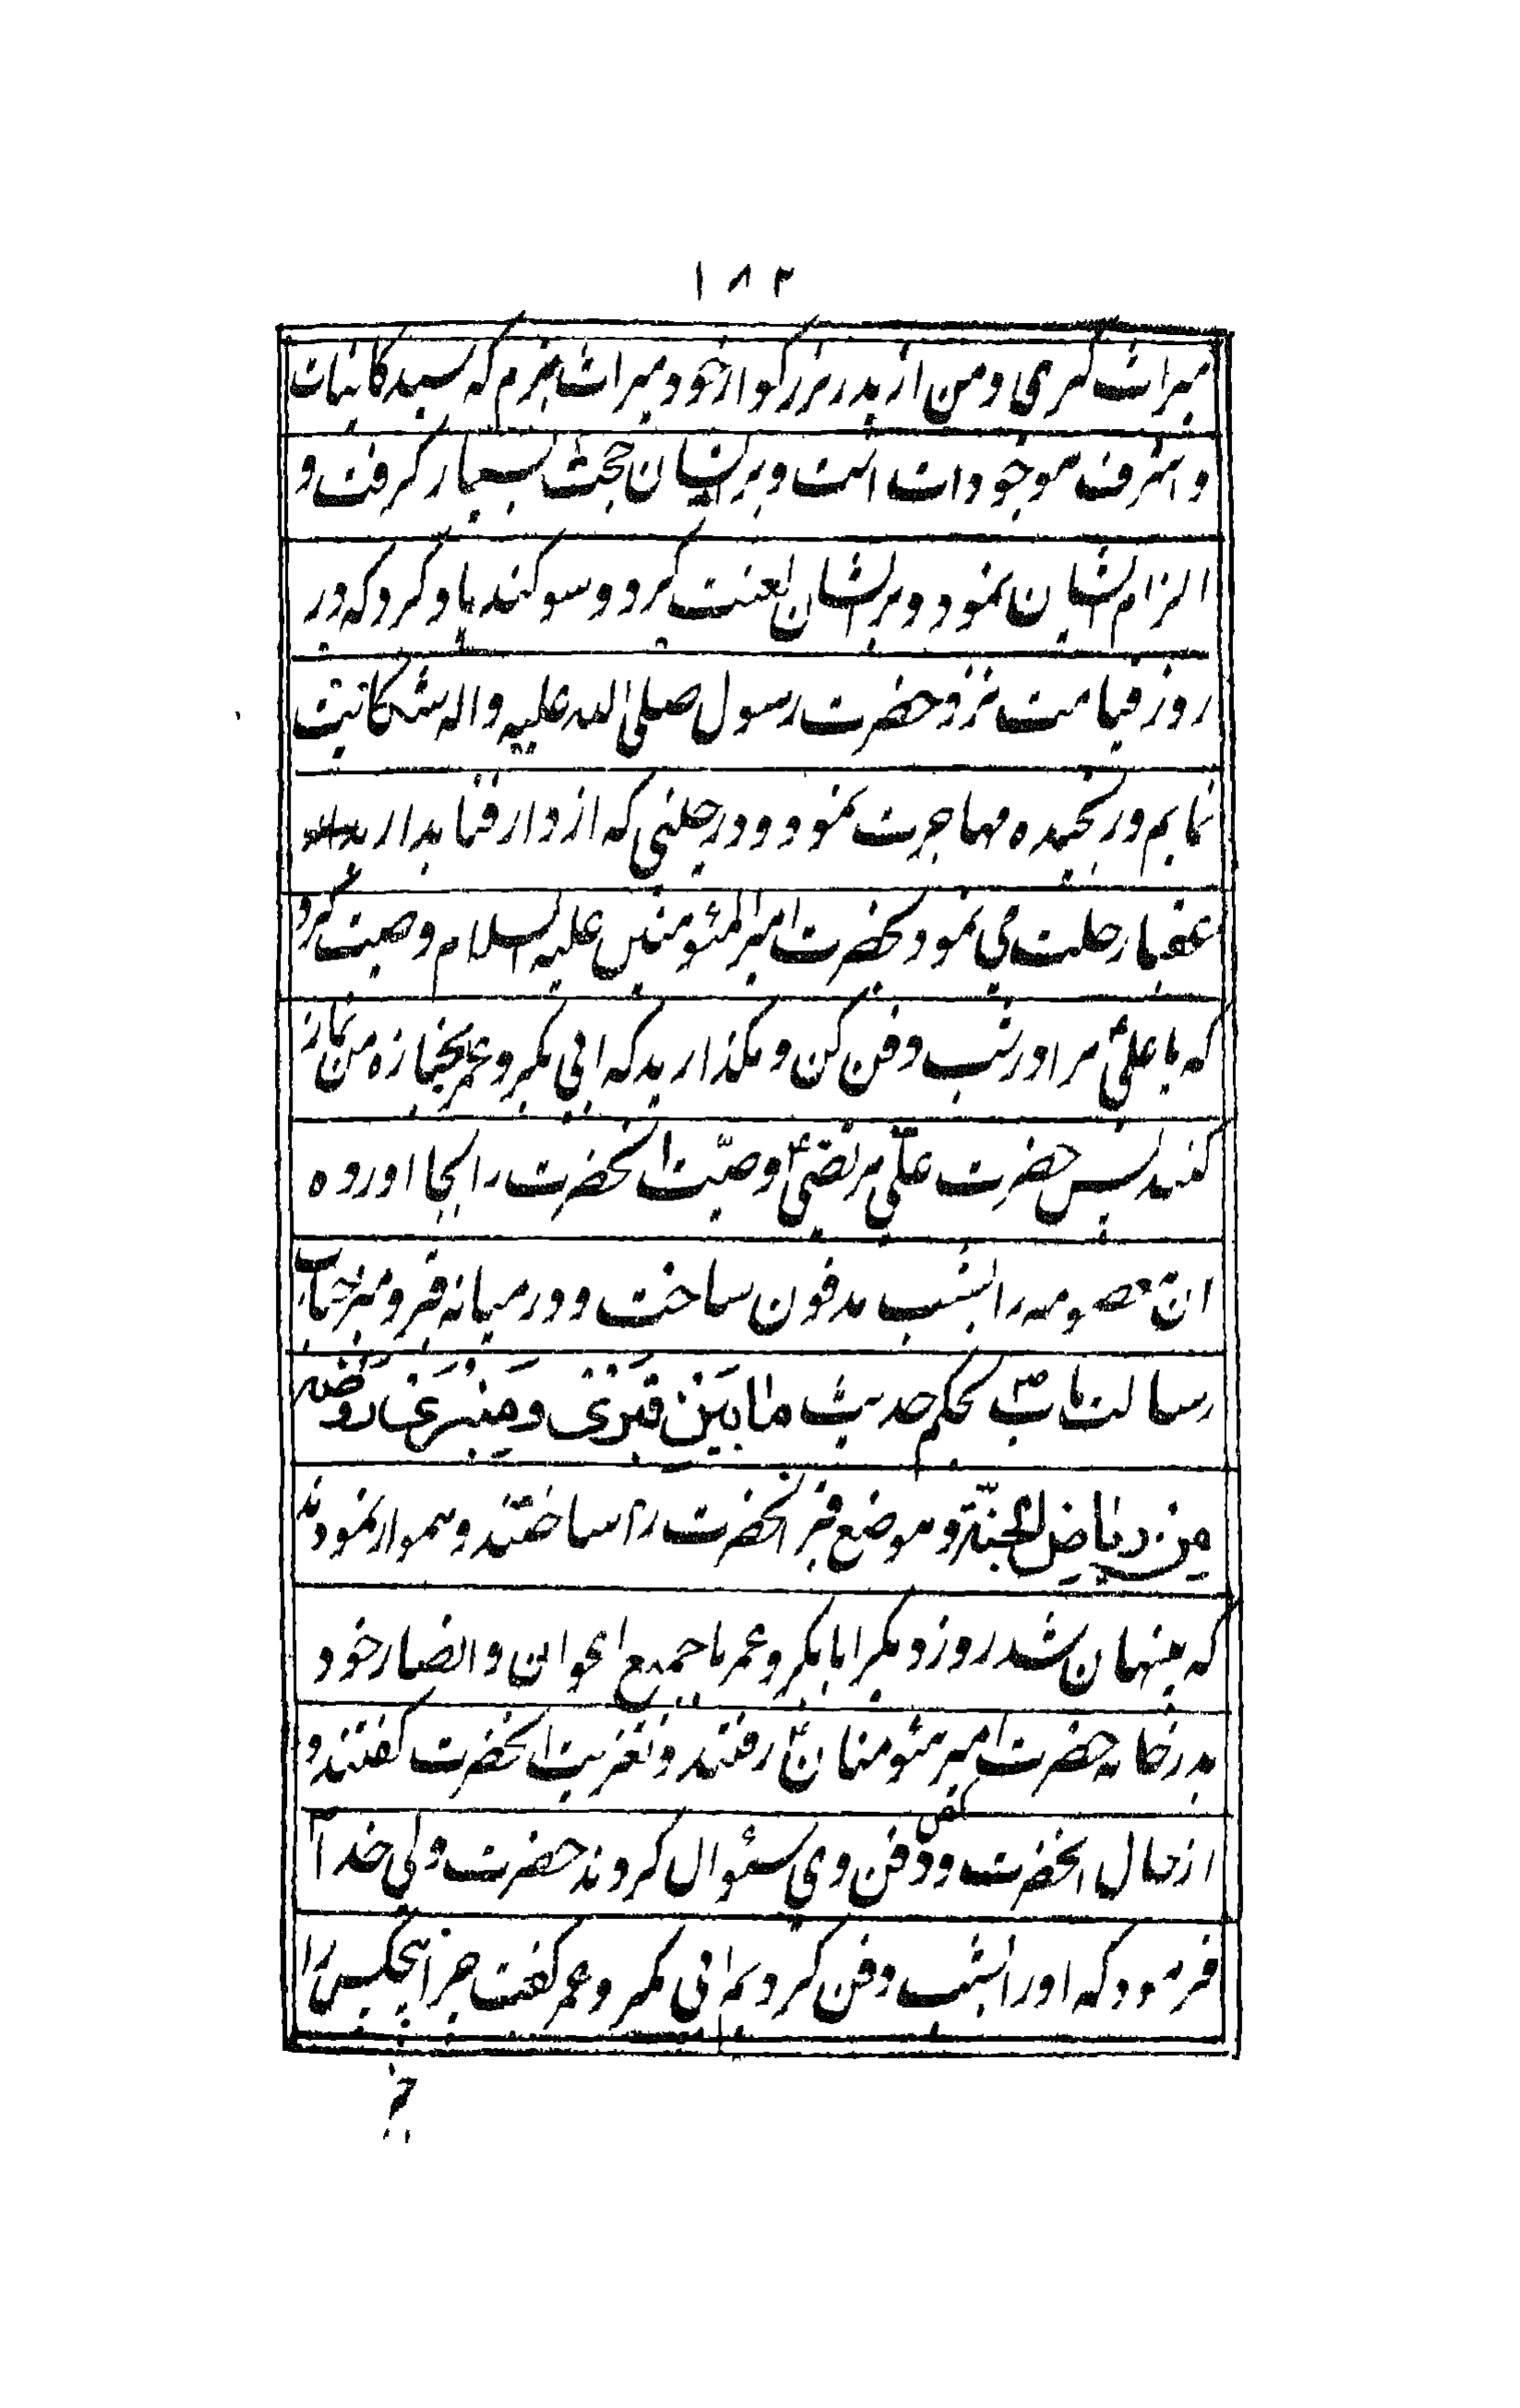 ۱۸۲
میراث گیری و من از پدر بزرگوار خود میراث نبرم که سید کاینات
و اشرف موجودات است و برایشان حجت بسیار گرفت و
الزام ایشان نمود و برایشان لعنت کرد و سوکند یاد کرد که در
روز قیامت نزد حضرت رسول صلی الله علیه و اله شکایت
نمایم و رنجیده مهاجرت نمود و در حلتی که از دار فنا بدار
عقبا رحلت می نمود بحضرت امیر المئومنین علیه السلام وصیت کرد
که یا علی ع مرا در شب دفن کن و مگذارید که ابی بکر و عمر بجنازه من نماز
کنند پس حضرت علی مرتضی ع وصیت انحضرت را بجا اورده
ان معصومه را بشب مدفون ساخت و در میانه قبر و منبر جناب
رسالت ماب ص بحکم حدیث مَا بَیْنَ قَبْرِی وَ مِنْبَرِی رَوْضَةٌ
مِنْ رِیَاضِ الْجَنَّةِ و موضع قبر انحضرت را ساختند و هموار نمودند
که پنهان شد روز دیگر ابابکر و عمر با جمیع اعوان و انصار خود
بدر خانه حضرت امیر مئومنان ع رفتند و تعزیت انحضرت کفتند و
از حال انحضرت و کفن و دفن وی سئوال کردند حضرت ولی خدا
فرمود که او را بشب دفن کردیم ابی بکر و عمر کفت چرا هیچکس را